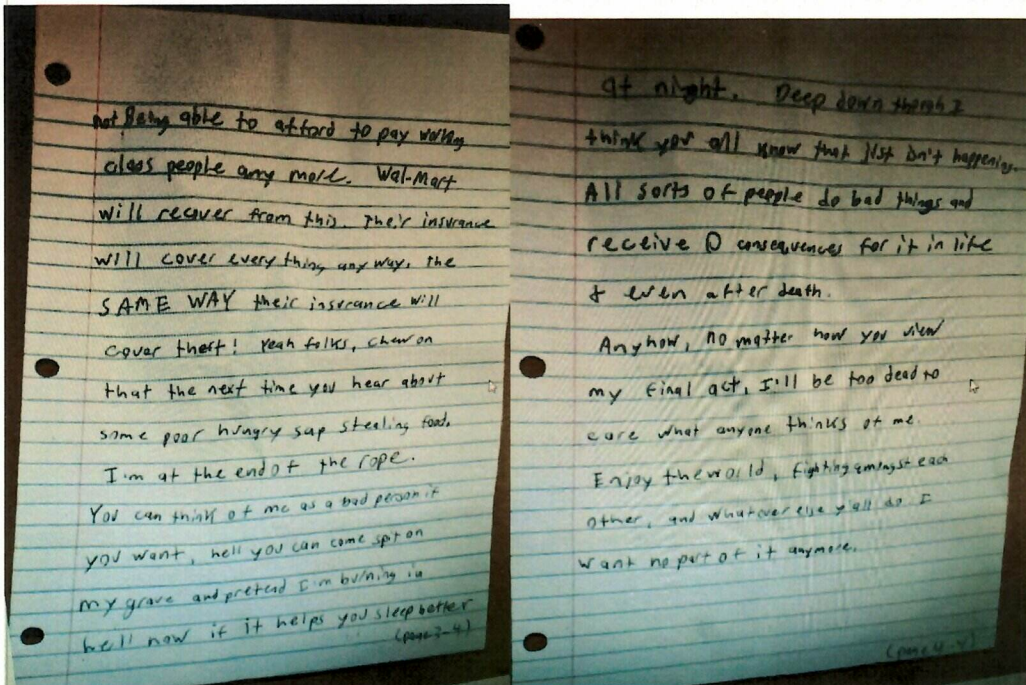 not Being able to afford to pay working
class people any more. Wal-Mart
will recover from this. Their insurance
will cover everything anyway, the
SAME WAY their insurance will
cover theft! Yeah folks, chew on
that the next time you hear about
some poor hungry sap stealing food.
I'm at the end of the rope.
You can think of me as a bad person if
you want, hell you can come spit on
my grave and pretend I'm burning in
hell now if it helps you sleep better
(page 3-4)
at night. Deep down though I
think you all know that just isn't happening.
All sorts of people do bad things and
receive 0 consequences for it in life
& even after death.
Anyhow, no matter how you view
my final act, I'll be too dead to
care what anyone thinks of me.
Enjoy the world, fighting amingst each
other, and whatever else y'all do I
want no part of it anymore.
(page 4-4)